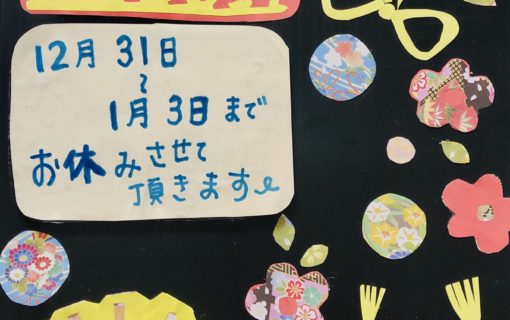 12月 31日
～
1月 3日 まで
お休みさせて
頂きます